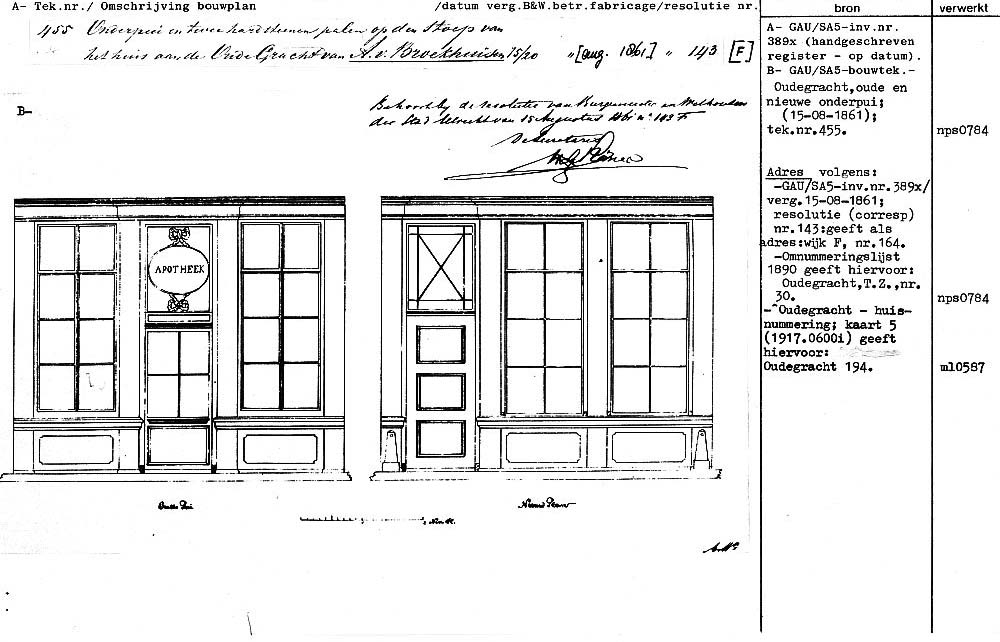 A- Tek.nr./ Omschrijving bouwplan /datum verg.B&W.betr.fabricage/resolutie nr.
bron
verwerkt
455 Onderpui en twee hardsteenen palen op den Stoep van
het huis aan de Oude Gracht van A. v. Broekhuizen 15/20 " [aug. 1861] " 143 [F]
B-
Behoort bij de resolutie van Burgemeester en Wethouders
der Stad Utrecht van 15 Augustus 1861 n° 143 F
De Secretaris
APOTHEEK
Oude Pui
A- GAU/SA5-inv.nr.
389x (handgeschreven
register - op datum).
B- GAU/SA5-bouwtek.-
Oudegracht,oude en
nieuwe onderpui;
(15-08-1861);
tek.nr.455.
nps0784
Adres volgens:
-GAU/SA5-inv.nr.389x/
verg.15-08-1861;
resolutie (corresp)
nr.143:geeft als
adres:wijk F, nr.164.
-Omnummeringslijst
1890 geeft hiervoor:
Oudegracht,T.Z.,nr.
30.
nps0784
-Oudegracht - huis-
nummering; kaart 5
(1917.06001) geeft
hiervoor:
Oudegracht 194.
ml0587